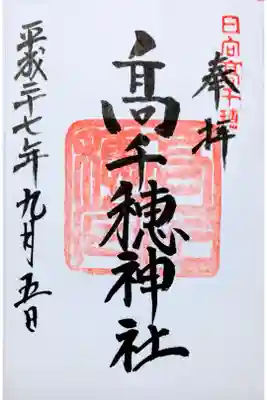 日向高千穂
奉拝
髙千穂神社
平成二十七年九月五日